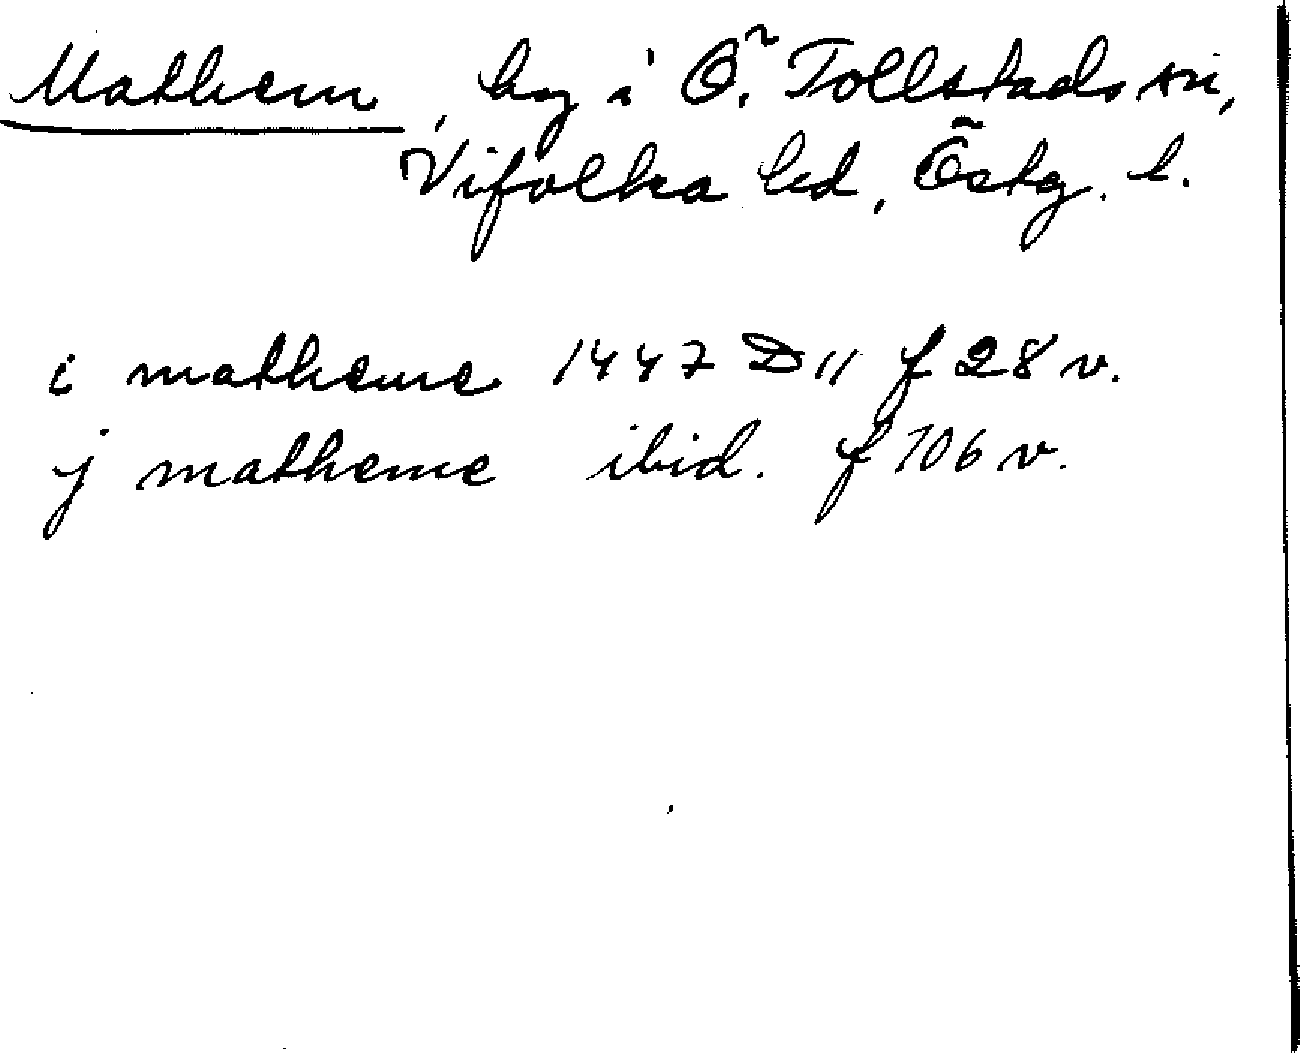 Mathem, by i Ö. Tollstads sn,
Vifolka hd, Östg. l.
i matheme 1447 D11 f 28 v.
j matheme ibid. f 106 v.